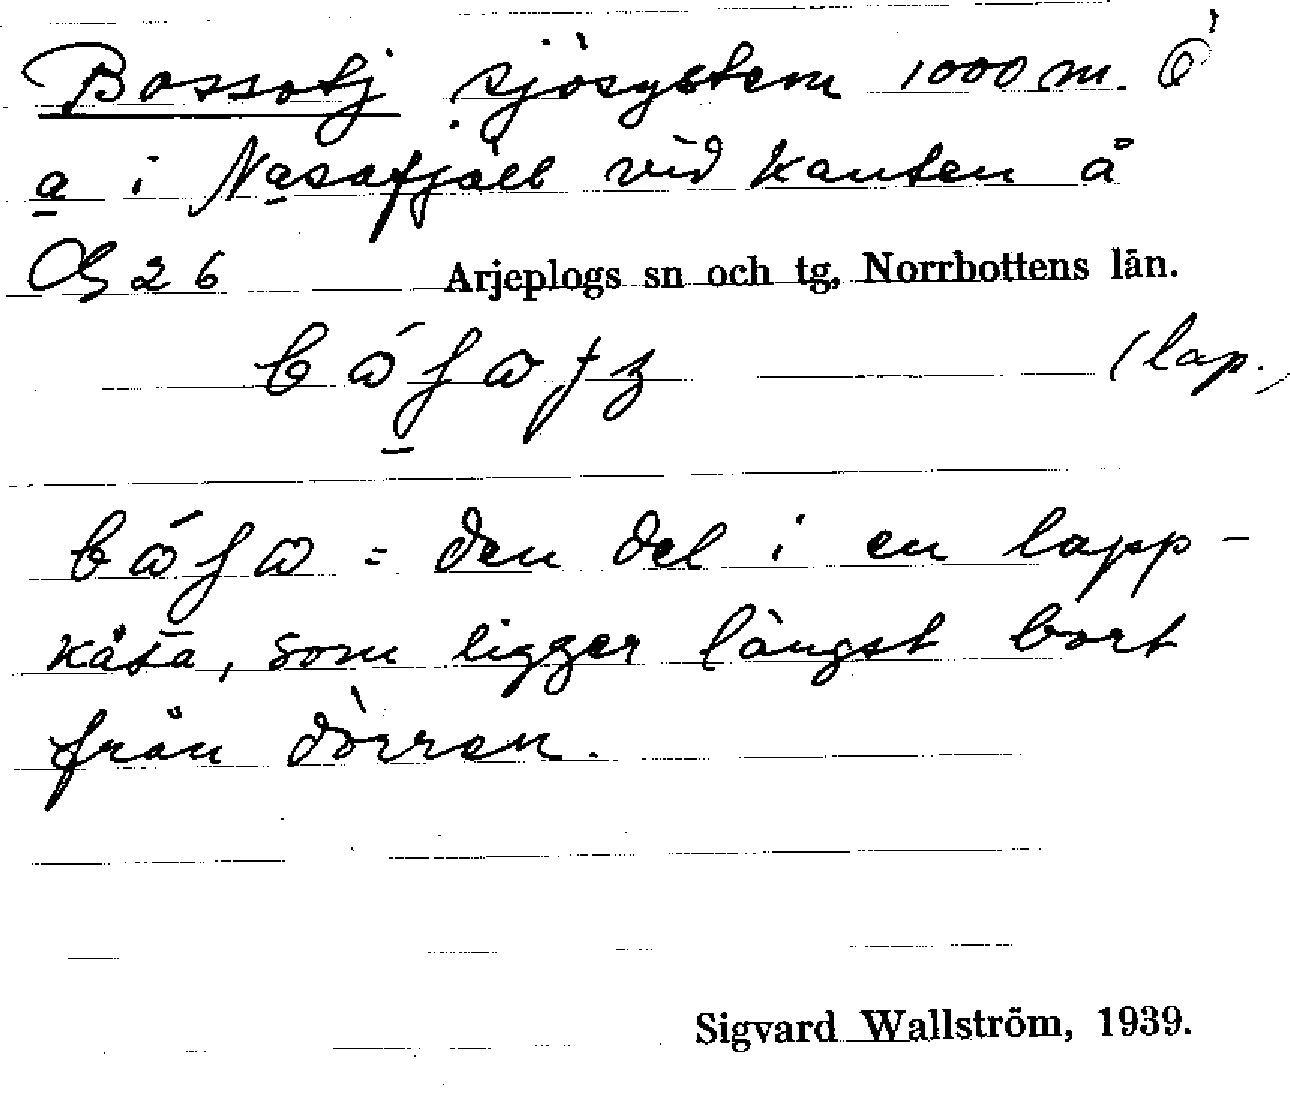 Bossotj sjösystem 1000 m. Ö
a i Nasafjäll vid kanten å
G 26 Arjeplogs sn och tg, Norrbottens län.
(lap.,
= den del i en lapp-
kåta, som ligger längst bort
från dörren.
Sigvard Wallström, 1939.